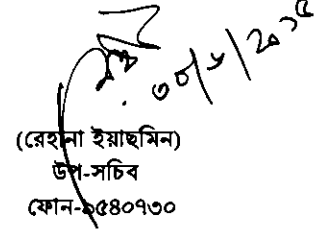 ৩০/৮/২০১৫
(রেহানা ইয়াছমিন)
উপ-সচিব
ফোন-৯৫৪০৭৩০